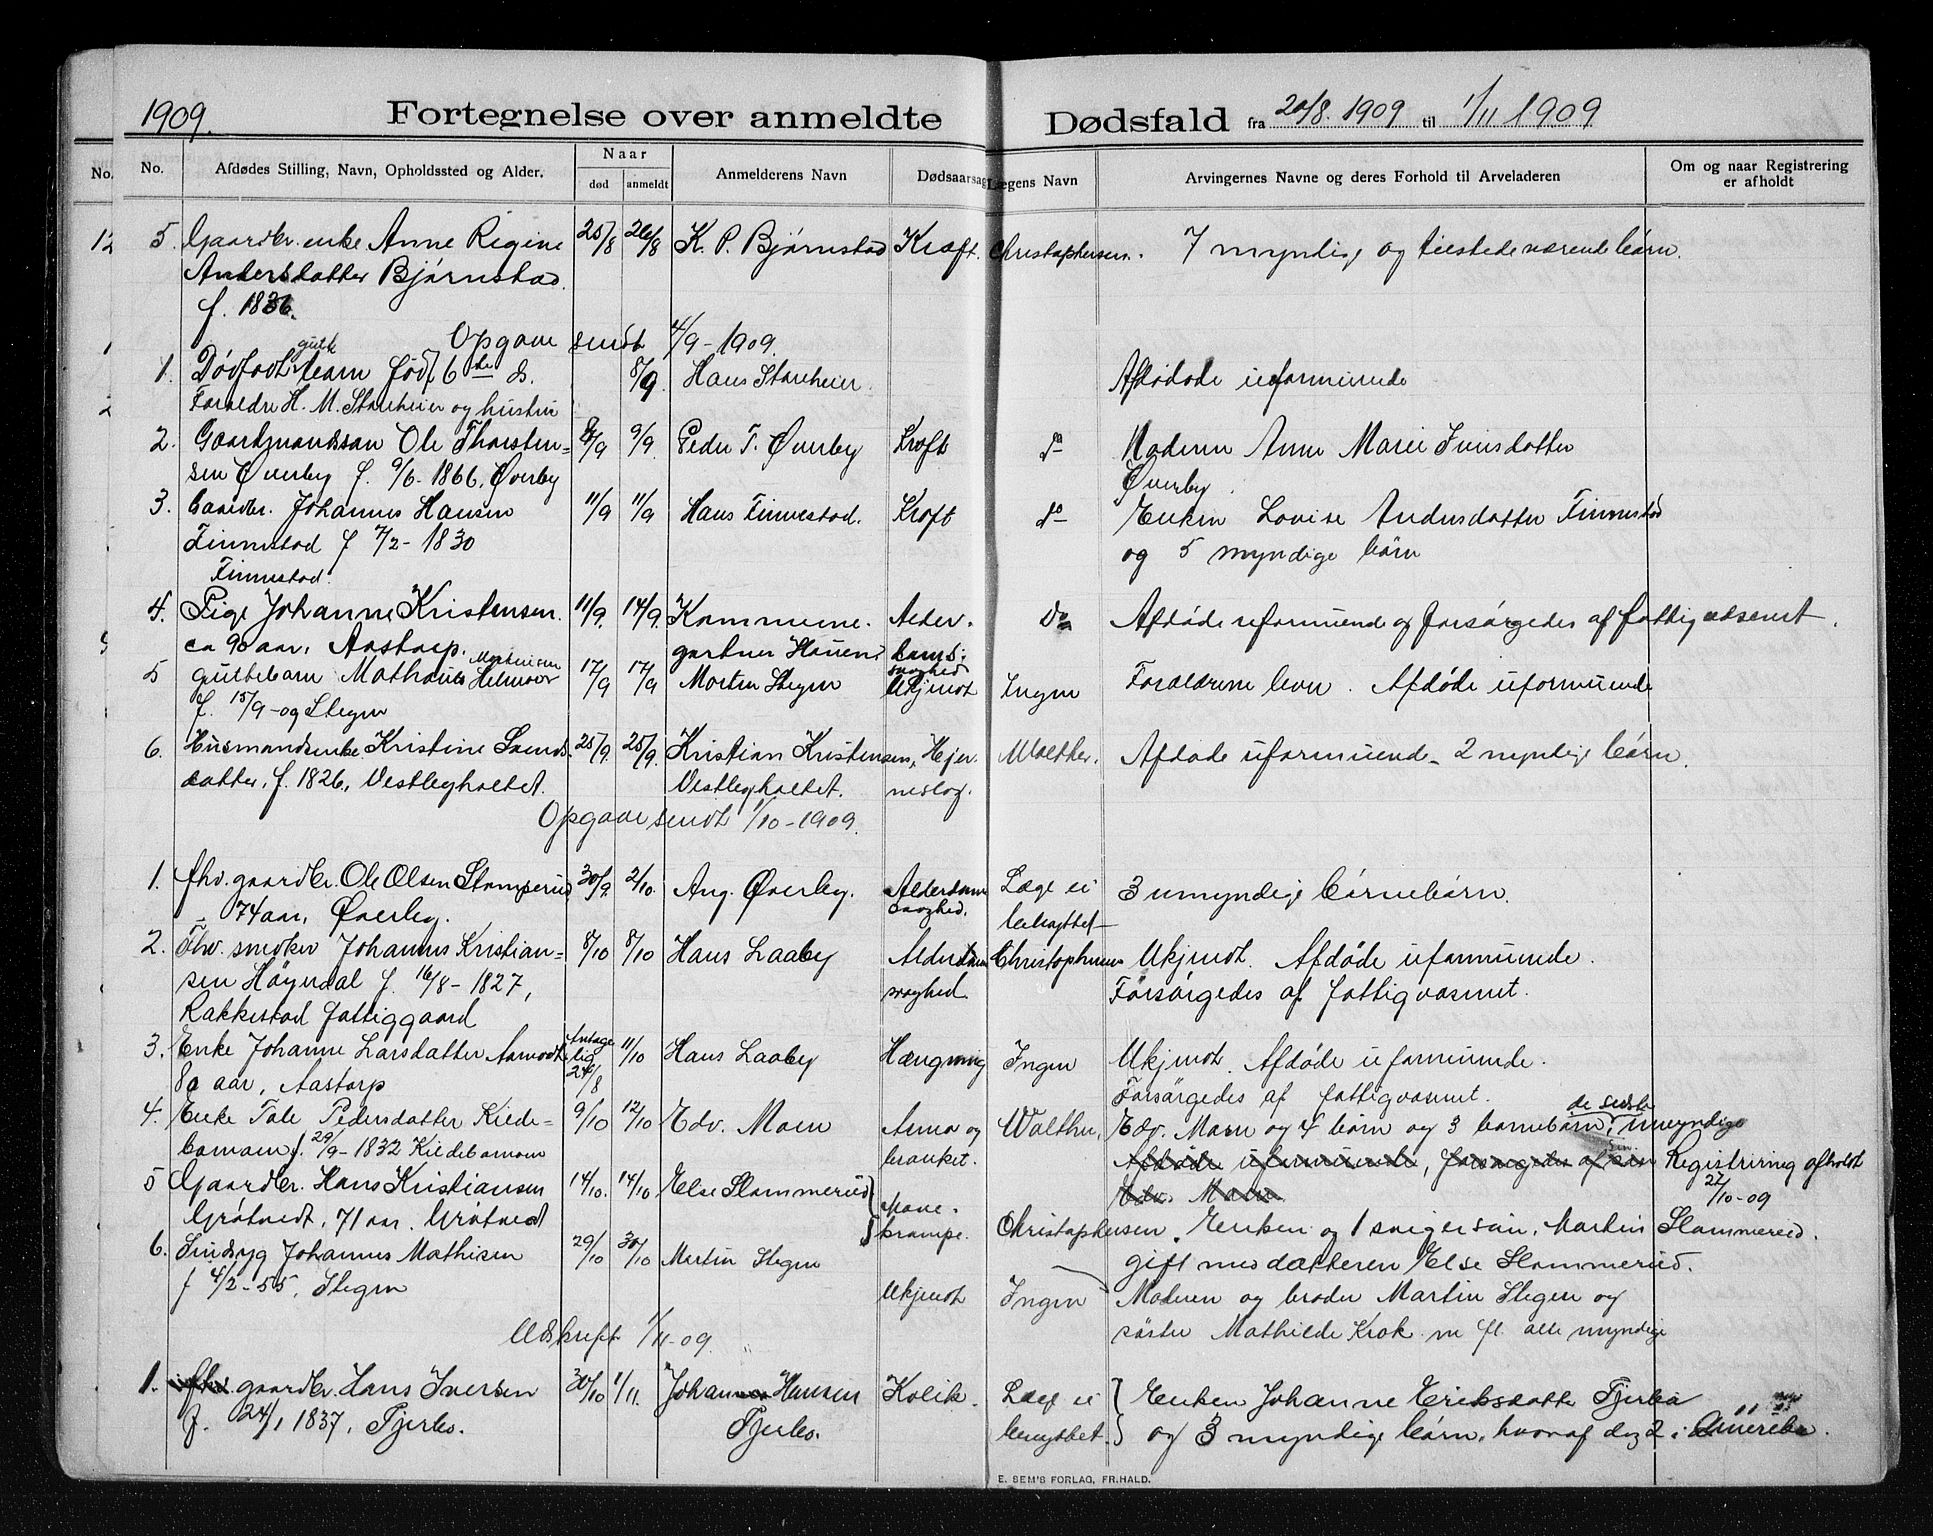 1909.
Fortegnelse over anmeldte Dødsfald fra 20/8. 1909 til 1/11 1909
No.
No. Afdødes Stilling, Navn, Opholdssted og Alder.
Naar
død anmeldt
Anmelderens Navn
Dødsaarsag
Lægens Navn
Arvingernes Navne og deres Forhold til Arveladeren
Om og naar Registrering
er afholdt
12
5. Gaardbr. enke Anne Rigine 25/8 26/8 K. P. Bjørnstad Kræft. Christophersen. 7 myndige og tilstedeværende børn.
Andersdatter Bjørnstad.
f. 1836.
Opgave sendt 4/9 - 1909.
1. Dødfødt gutt barn født 6te ds. 8/9 Hans Storeheier Afdøde uformuende
Foræld­re H. M. Storeheier og hustru
2. Gaardmandssøn Ole Thorsten= 8/9 9/9. Peder T. Øverby Kræft do Moderen Anne Marie Iversdatter
sen Øverby f. 9/6 - 1866, Øverby Øverby.
3. Gaardbr. Johannes Hansen 11/9 11/9 Hans Finnestad. Kræft do Enken Lovise Andersdatter Finnestad
Finnestad f 7/2 - 1830 og 5 myndige børn
Finnestad.
4. Pige Johanne Kristensen. 11/9. 14/9. Kommune- Alder- Do Afdøde uformuende og forsørgedes af fattigvæsenet.
ca 90 aar, Aastorp. gartner Hauen. doms-
svaghed
5 guttebarn Mathæus Helmer Martinsen 17/9 17/9 Morten Stegen Ukjendt Ingen Forældrene lever. Afdøde uformuende
f. 15/9 - 09 Stegen
6. Husmandsenke Kristine Svends- 25/9. 25/9. Kristian Kristensen, Hjer- Walther. Afdøde uformuende - 2 myndige børn.
datter, f. 1826, Vestbyholtet. Vestbyholtet. neslag.
Opgave sendt 1/10 - 1909.
1. fhv. gaardbr. Ole Olsen Stamperud 30/9. 2/10. Aug. Øverby. Alderdoms Læge ei 3 umyndige børnebørn.
74 aar, Øverby. svaghed. benyttet
2. Fhv. snedker Johannes Kristian= 8/10 8/10 Hans Laaby Alderdoms Christophersen Ukjendt. Afdøde uformuende.
sen Høyendal f. 16/8 - 1827, svaghed Forsørgedes af fattigvæsenet.
Rakkestad fattiggaard
3. Enke Johanne Larsdatter Aamodt Antage lig 24/8 11/10 Hans Laaby Hængning Ingen Ukjendt. Afdøde uformuende.
80 aar, Aastorp Forsørgedes af fattigvæsenet.
4. Enke Tale Pedersdatter Kilde= 9/10 12/10 Edv. Moen Asma og Walther. Edv. Moen og 4 børn og 3 barnebørn, de sidste umyndige
bamoen f. 29/9 - 1832 Kildebamoen bronket. Afdøde uformuende, forsørgedes af søn Registrering afholdt
Edv. Moen. 22/10 - 09
5 Gaardbr. Hans Kristiansen 14/10. 14/10 Else Slammerud Mave-
Grøtvedt, 71 aar. Grøtvedt krampe. Christophersen. Enken og 1 svigersøn, Martin Slammerud.
gift med datteren Else Slammerud.
6. Sindsyg Johannes Mathisen 29/10 30/10 Martin Stegen
f 4/2 - 55, Stegen Ukjendt Ingen Moderen og broder Martin Stegen og
søster Mathilde Krok m fl. alle myndige
Udskrift 1/11 - 09.
1. fhv. gaardbr. Hans Iversen 30/10 1/11. Johannes Hansen Kolik. Læge ei Enken Johanne Eriksdatter Fjerbo
f. 24/1 1837, Fjerbo. Fjerbo. benyttet. og 3 myndige børn, hvoraf dog 2 i Amerika.
E. SEM'S FORLAG, FR.HALD.